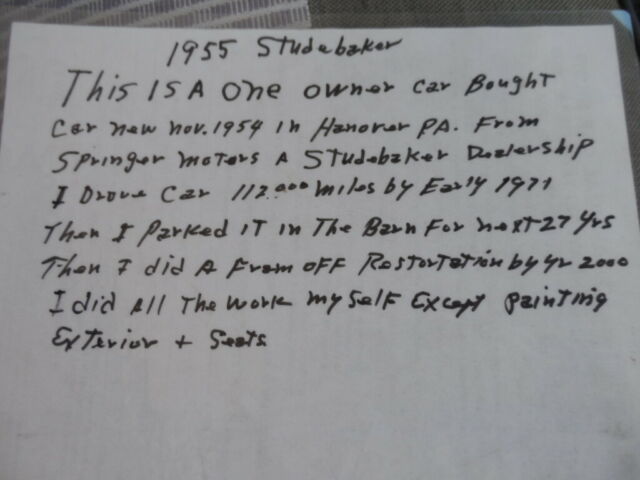 1955 Studebaker
This IS A One owner car Bought
Car new nov. 1954 in Hanover PA. From
Springer Motors A Studebaker Dealership
I Drove Car 112,000 miles by Early 1971
Then I Parked IT in The Barn For next 27 Yrs
Then I did A Fram OFF Restortation by yr 2000
I did All The Work my Self Except painting
Exterior + Seats